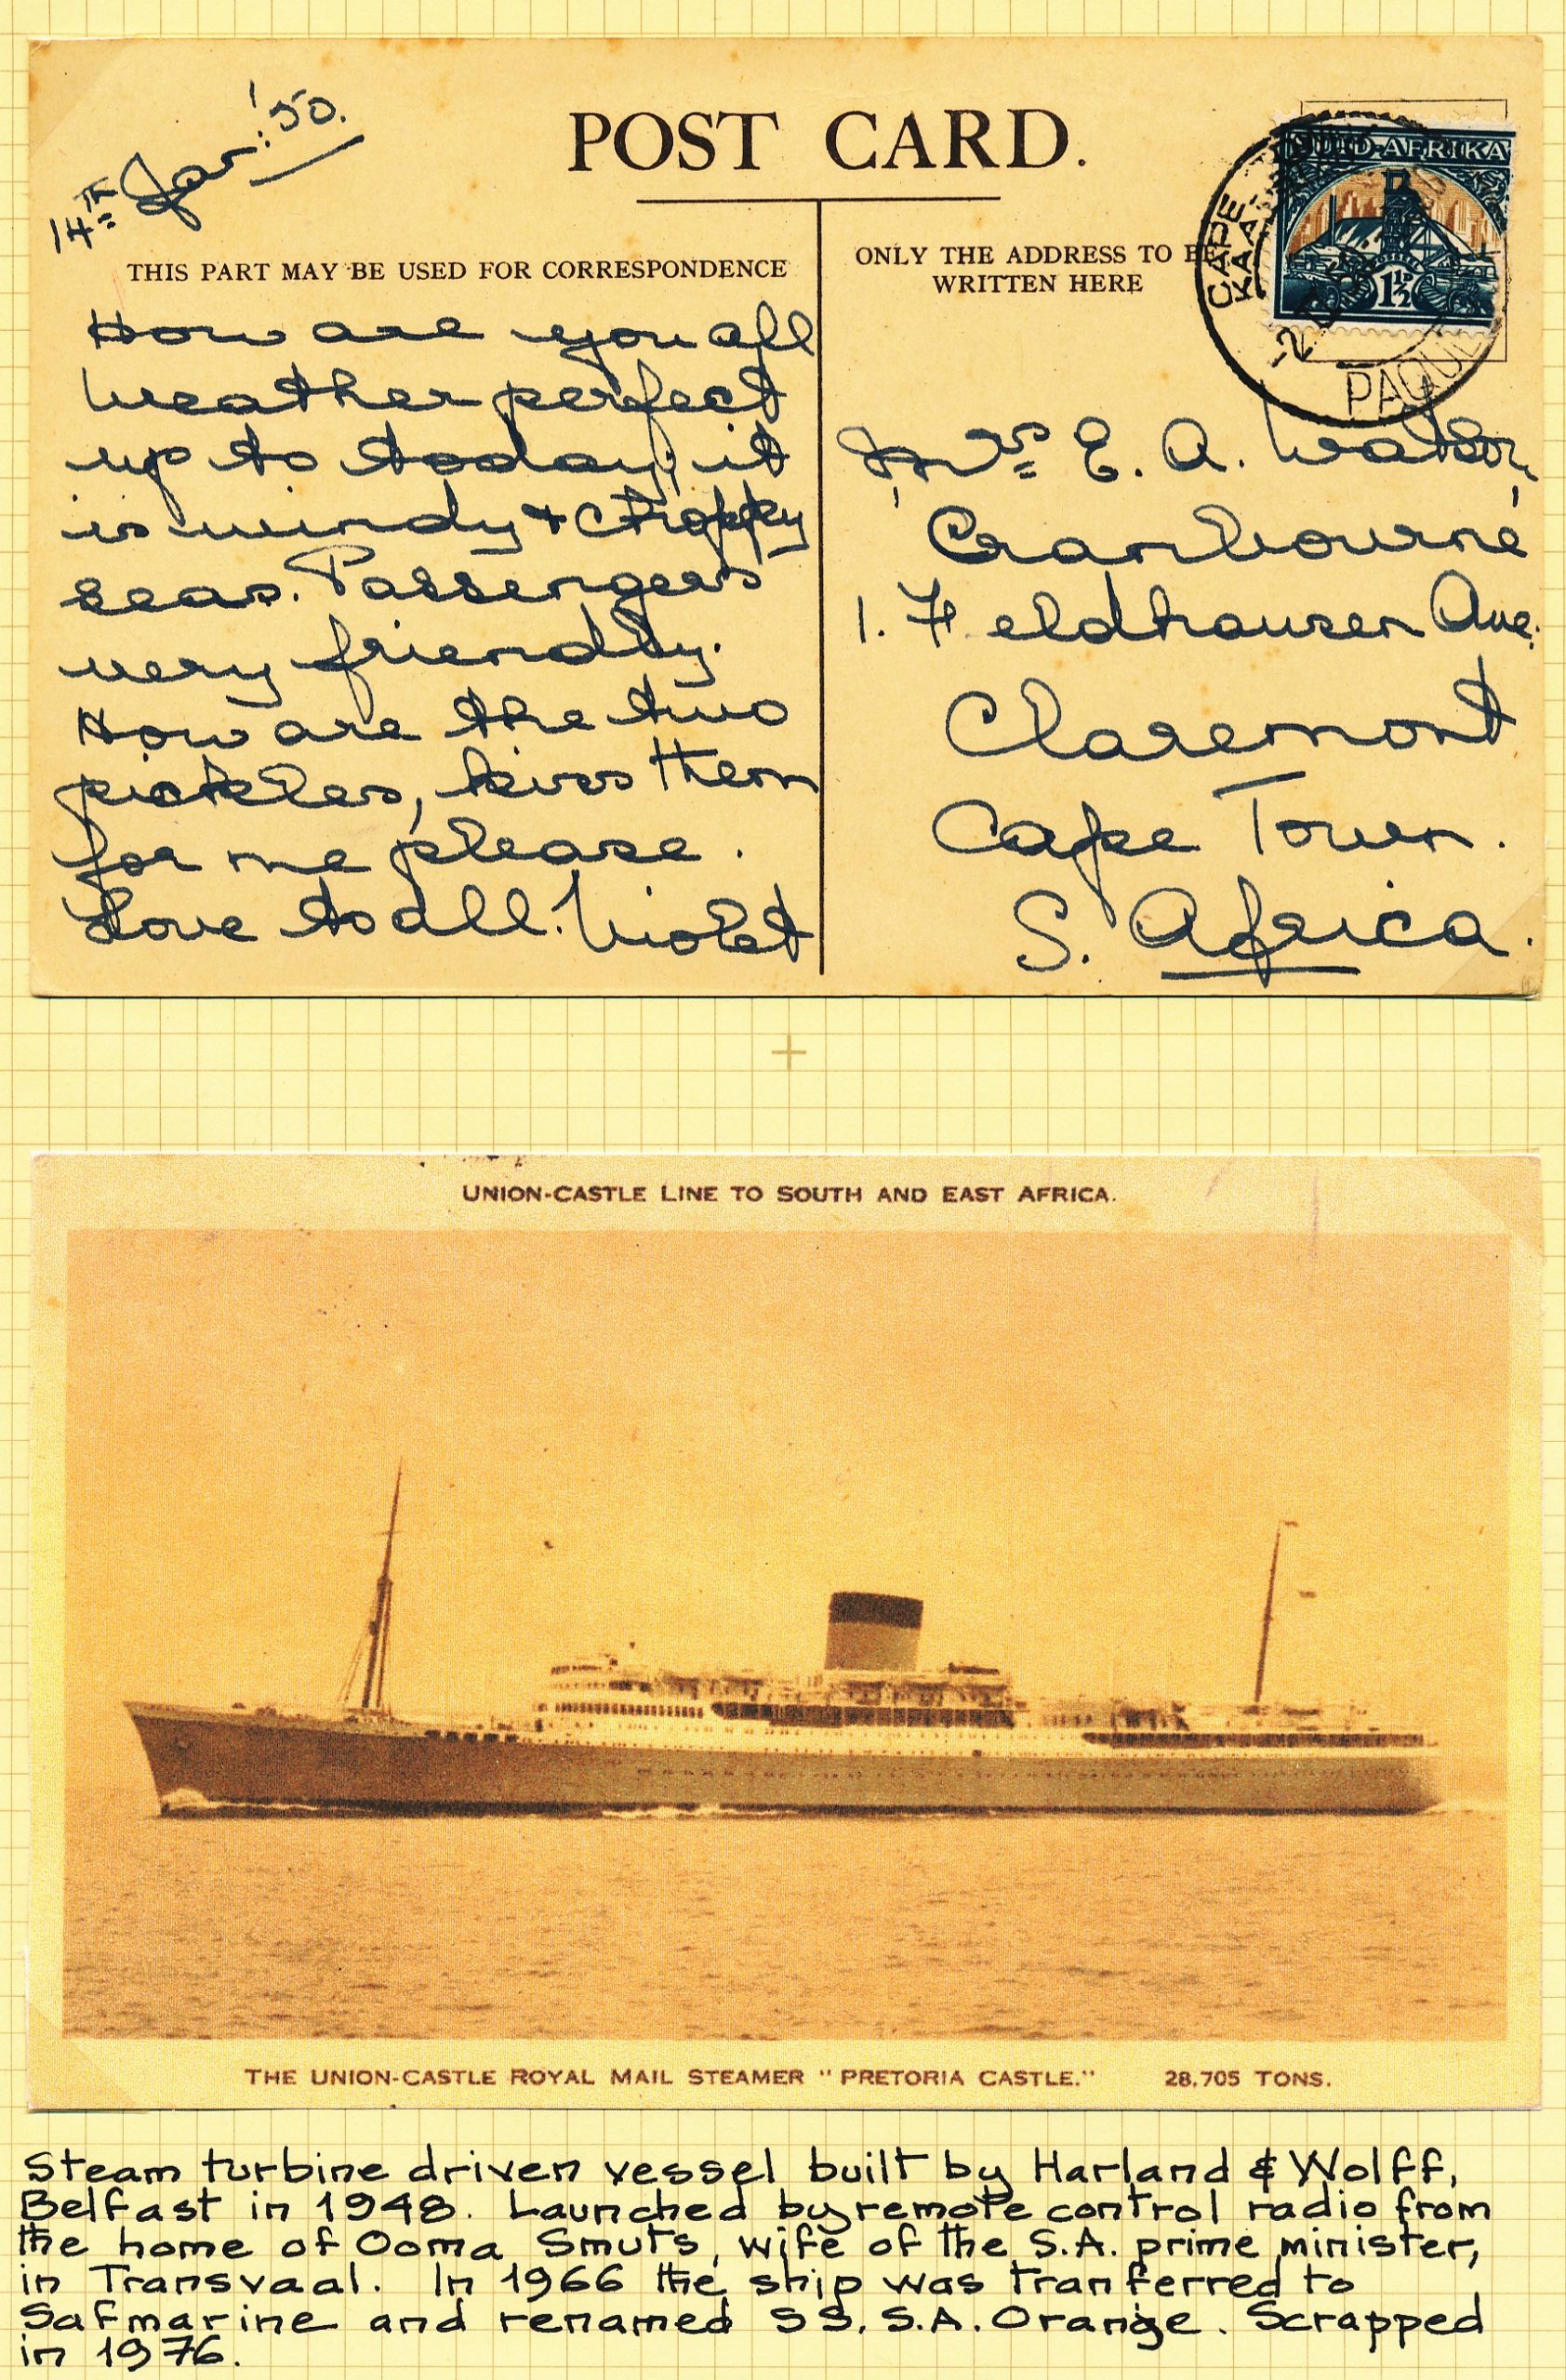 14TH Jan: '50.
POST CARD.
THIS PART MAY BE USED FOR CORRESPONDENCE
How are you all
weather perfect
up to today, it
is windy + choppy
seas. Passengers
very friendly.
How are the two
pickles, kiss them
for me please.
Love to all. Violet
ONLY THE ADDRESS TO BE
WRITTEN HERE
SUID-AFRIKA
1½
CAPE
KAA
PAQUE
Mrs E. A. Watson,
"Cranbourne"
1. Feldhausen Ave.
Claremont
Cape Town.
S. Africa.
UNION-CASTLE LINE TO SOUTH AND EAST AFRICA.
THE UNION-CASTLE ROYAL MAIL STEAMER "PRETORIA CASTLE." 28,705 TONS.
Steam turbine driven vessel built by Harland & Wolff,
Belfast in 1948. Launched by remote control radio from
the home of Ooma Smuts, wife of the S.A. prime minister,
in Transvaal. In 1966 the ship was tranferred to
Safmarine and renamed SS. S.A. Oranje. Scrapped
in 1976.